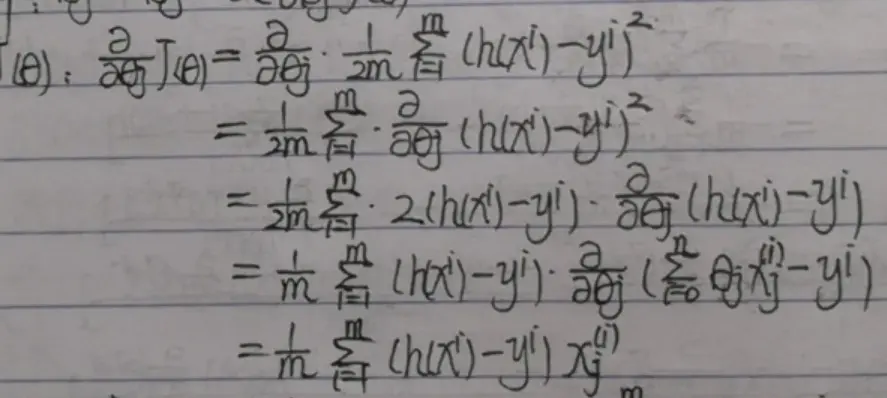 (θ): ∂/∂θj J(θ) = ∂/∂θj · 1/2m ∑_{i=1}^{m} (h(xⁱ)-yⁱ)²
= 1/2m ∑_{i=1}^{m} · ∂/∂θj (h(xⁱ)-yⁱ)²
= 1/2m ∑_{i=1}^{m} · 2(h(xⁱ)-yⁱ) · ∂/∂θj (h(xⁱ)-yⁱ)
= 1/m ∑_{i=1}^{m} (h(xⁱ)-yⁱ) · ∂/∂θj (∑_{i=0}^{n} θj xj⁽ⁱ⁾-yⁱ)
= 1/m ∑_{i=1}^{m} (h(xⁱ)-yⁱ) xj⁽ⁱ⁾
m